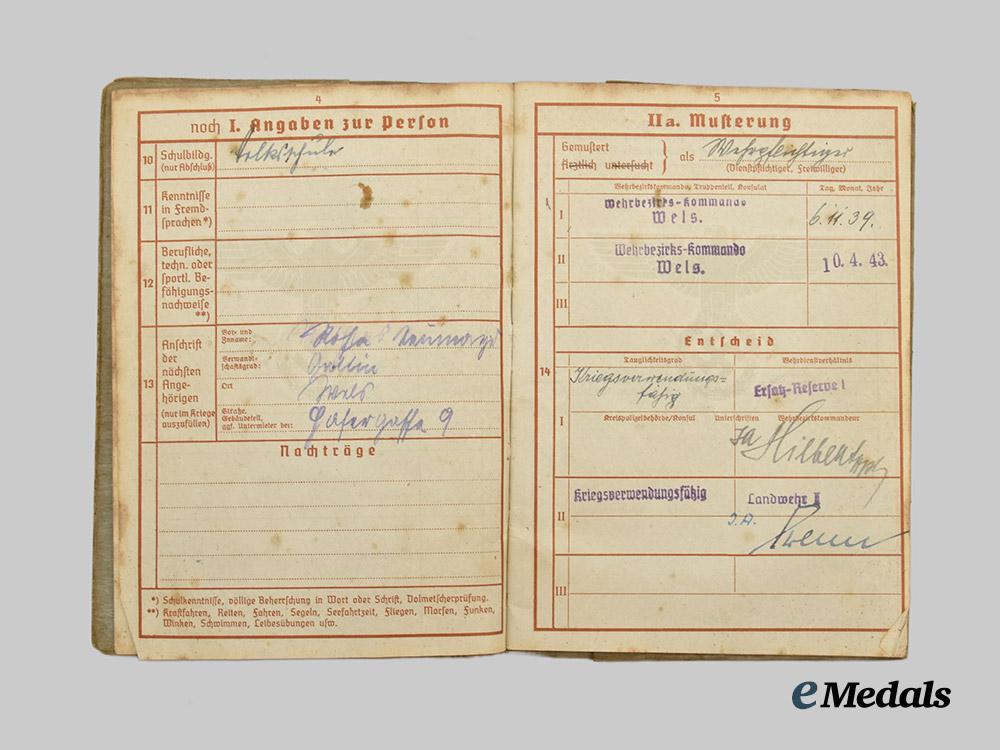 4
noch I. Angaben zur Person
10 Schulbildg. (nur Abschluß)
Volksschule
11 Kenntnisse in Fremdsprachen *)
12 Berufliche, techn. oder sportl. Befähigungsnachweise **)
13 Anschrift der nächsten Angehörigen (nur im Kriege auszufüllen)
Vor- und Zuname: Rosa
Verwandtschaftsgrad: Gattin
Ort Wels
Straße, Gebäudeteil, ggf. Untermieter bei: Hafergasse 9
Nachträge
*) Schulkenntnisse, völlige Beherrschung in Wort oder Schrift, Dolmetscherprüfung.
**) Kraftfahren, Reiten, Fahren, Segeln, Seefahrtzeit, Fliegen, Morsen, Funken,
Winken, Schwimmen, Leibesübungen usw.
5
II a. Musterung
Gemustert
ärztlich untersucht
als Wehrpflichtiger
(Dienstpflichtiger, Freiwilliger)
Wehrbezirkskommando, Truppenteil, Konsulat
Tag, Monat, Jahr
I Wehrbezirks-Kommando
Wels.
6.11.39.
II Wehrbezirks-Kommando
Wels.
10.4.43.
III
Entscheid
14
Tauglichkeitsgrad
Wehrdienstverhältnis
Kriegsverwendungs=
fähig
Ersatz-Reserve I
I
Kreispolizeibehörde/Konsul Unterschriften Wehrbezirkskommandeur
II
Kriegsverwendungsfähig
Landwehr II
J.A.
III
eMedals